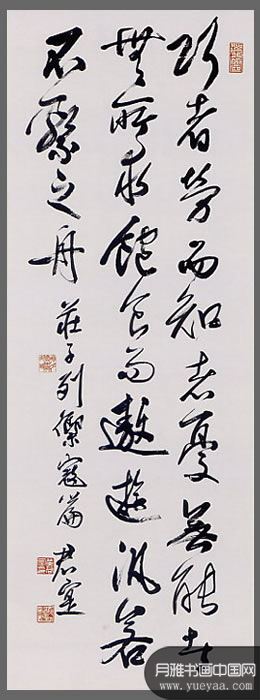 巧者劳而知者忧无能者
無所求饱食而遨遊汎若
不繫之舟 莊子列禦寇篇 君室
月雅书画中国网
www.yueyaa.com